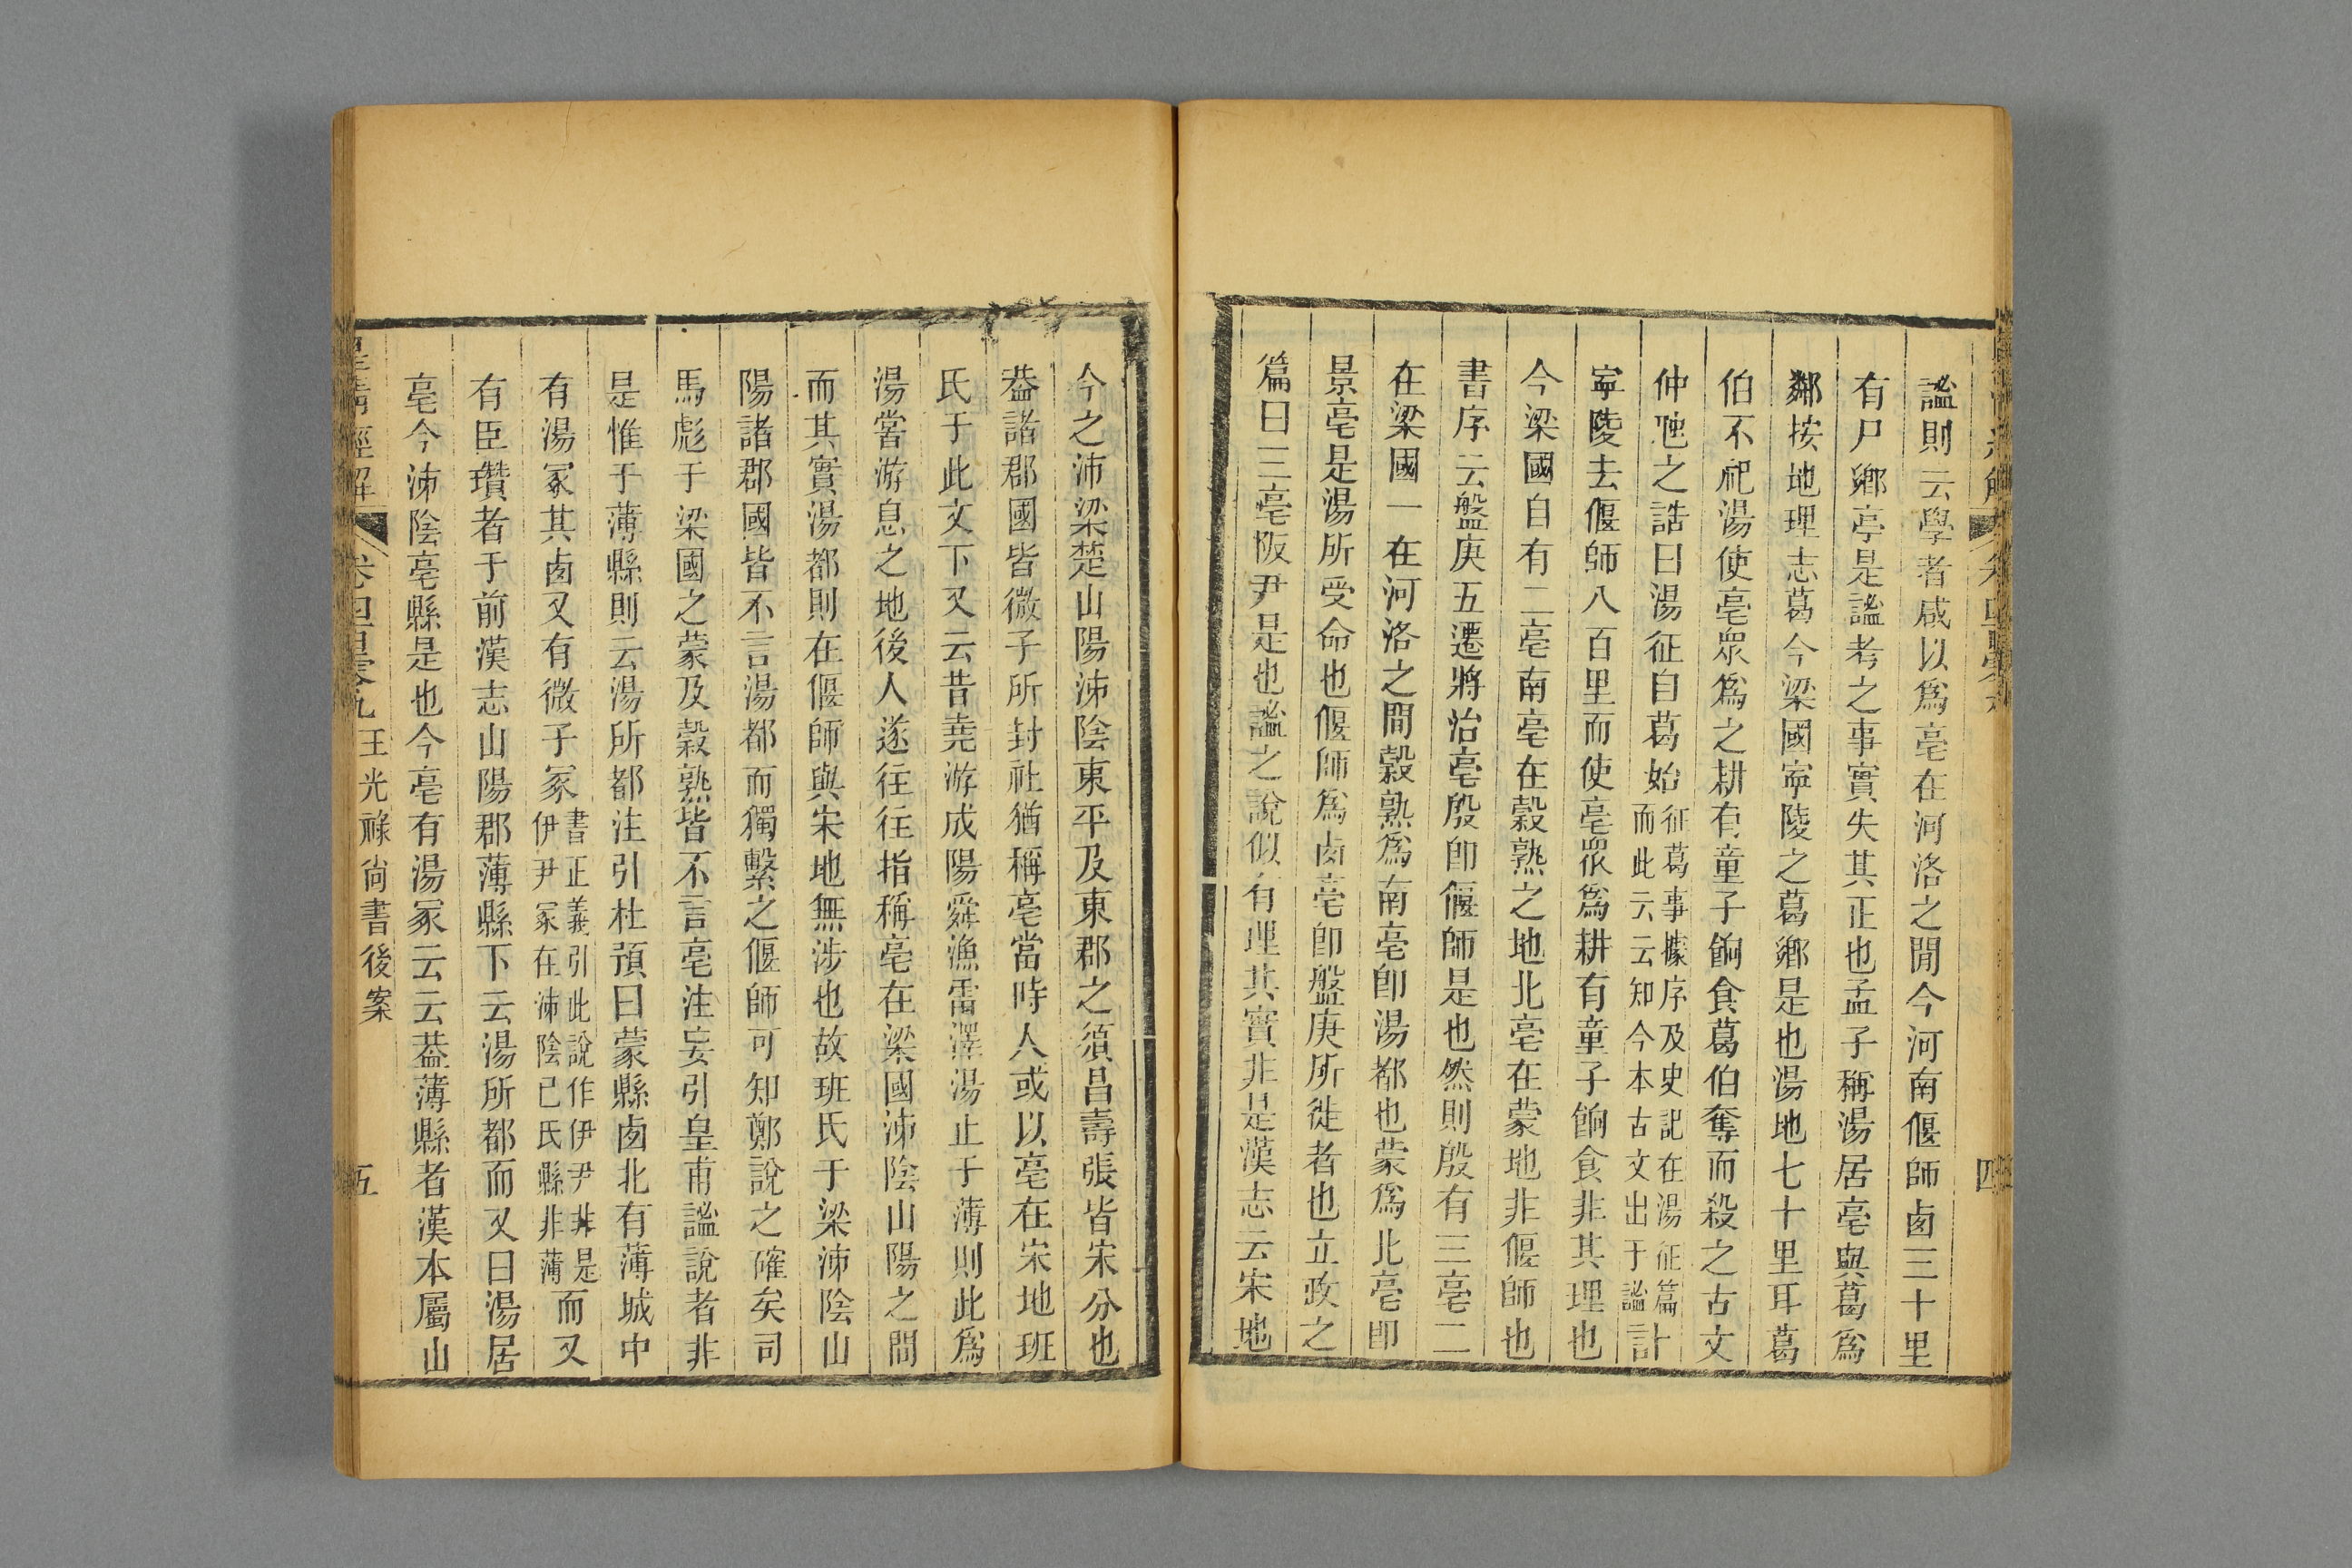 謐則云學者咸以爲亳在河洛之閒今河南偃師卥三十里
有尸鄉亭是謐考之事實失其正也孟子稱湯居亳與葛爲
鄰按地理志葛今梁國寧陵之葛鄉是也湯地七十里耳葛
伯不祀湯使亳眾爲之耕有童子餉食葛伯奪而殺之古文
仲虺之誥曰湯征自葛始征葛事據序及史記在湯征篇而此云云知今本古文出于謐計
寧陵去偃師八百里而使亳眾爲耕有童子餉食非其理也
今梁國自有二亳南亳在穀熟之地北亳在蒙地非偃師也
書序云盤庚五遷將治亳殷卽偃師是也然則殷有三亳二
在梁國一在河洛之閒穀熟爲南亳卽湯都也蒙爲北亳卽
景亳是湯所受命也偃師爲卥亳卽盤庚所徙者也立政之
篇曰三亳阪尹是也謐之說似有理其實非是漢志云宋地
四
今之沛梁楚山陽泲陰東平及東郡之須昌壽張皆宋分也
葢諸郡國皆微子所封社猶稱亳當時人或以亳在宋地班
氏于此文下又云昔堯游成陽舜漁雷澤湯止于薄則此爲
湯嘗游息之地後人遂往往指稱亳在梁國泲陰山陽之閒
而其實湯都則在偃師與宋地無涉也故班氏于梁泲陰山
陽諸郡國皆不言湯都而獨繫之偃師可知鄭說之確矣司
馬彪于梁國之蒙及穀熟皆不言亳注妄引皇甫謐說者非
是惟于薄縣則云湯所都注引杜預曰蒙縣卥北有薄城中
有湯冢其卥又有微子冢書正義引此說作伊尹非是伊尹冢在泲陰已氏縣非薄而又
有臣瓚者于前漢志山陽郡薄縣下云湯所都而又曰湯居
亳今泲陰亳縣是也今亳有湯冢云云葢薄縣者漢本屬山
皇清經解 卷四百零九 王光祿尙書後案 五